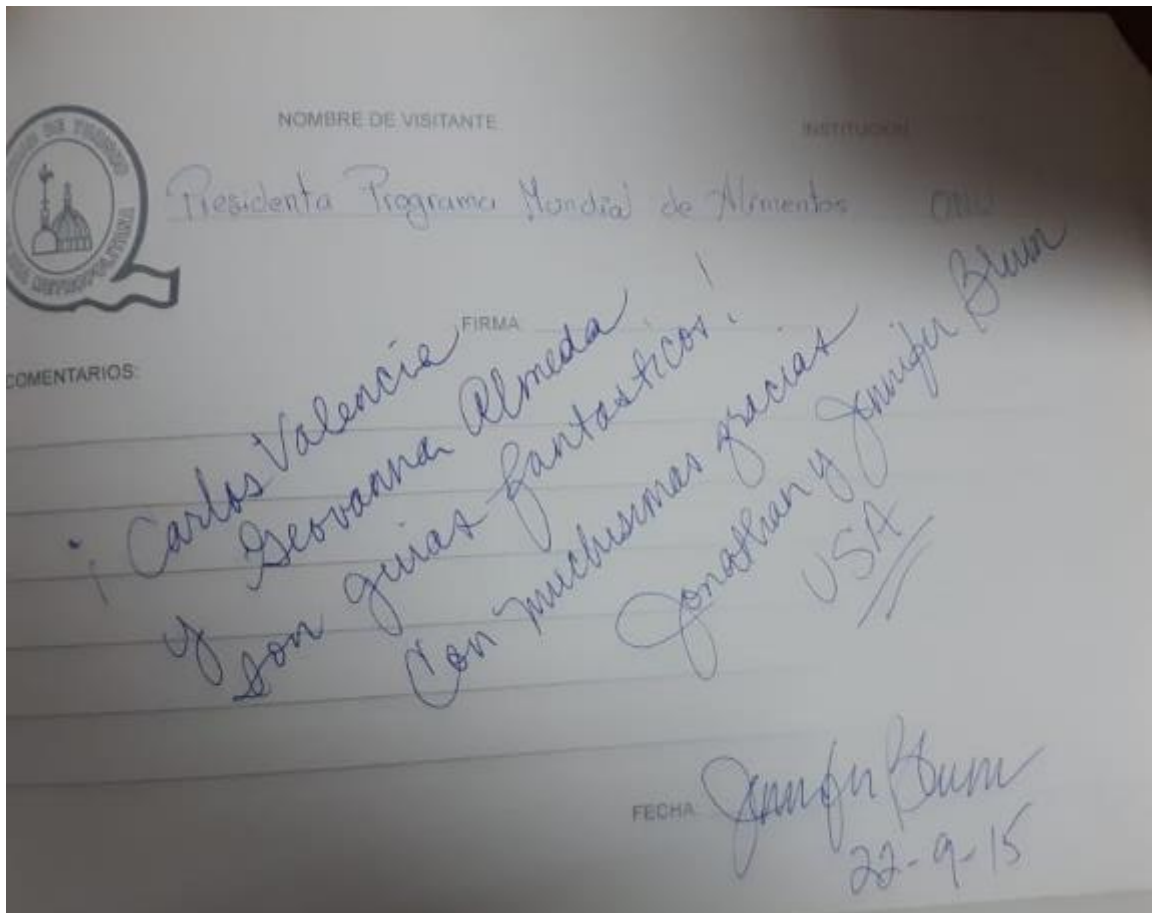 NOMBRE DE VISITANTE INSTITUCIÓN
Presidenta Programa Mundial de Alimentos ONU
METROPOLITANA
FIRMA
COMENTARIOS:
¡Carlos Valencia
y Geovanna Almeda
son guias fantasticos!
Con muchisimas gracias
Jonathan y Jennifer Brum
USA
FECHA Jennifer Brum
22-9-15